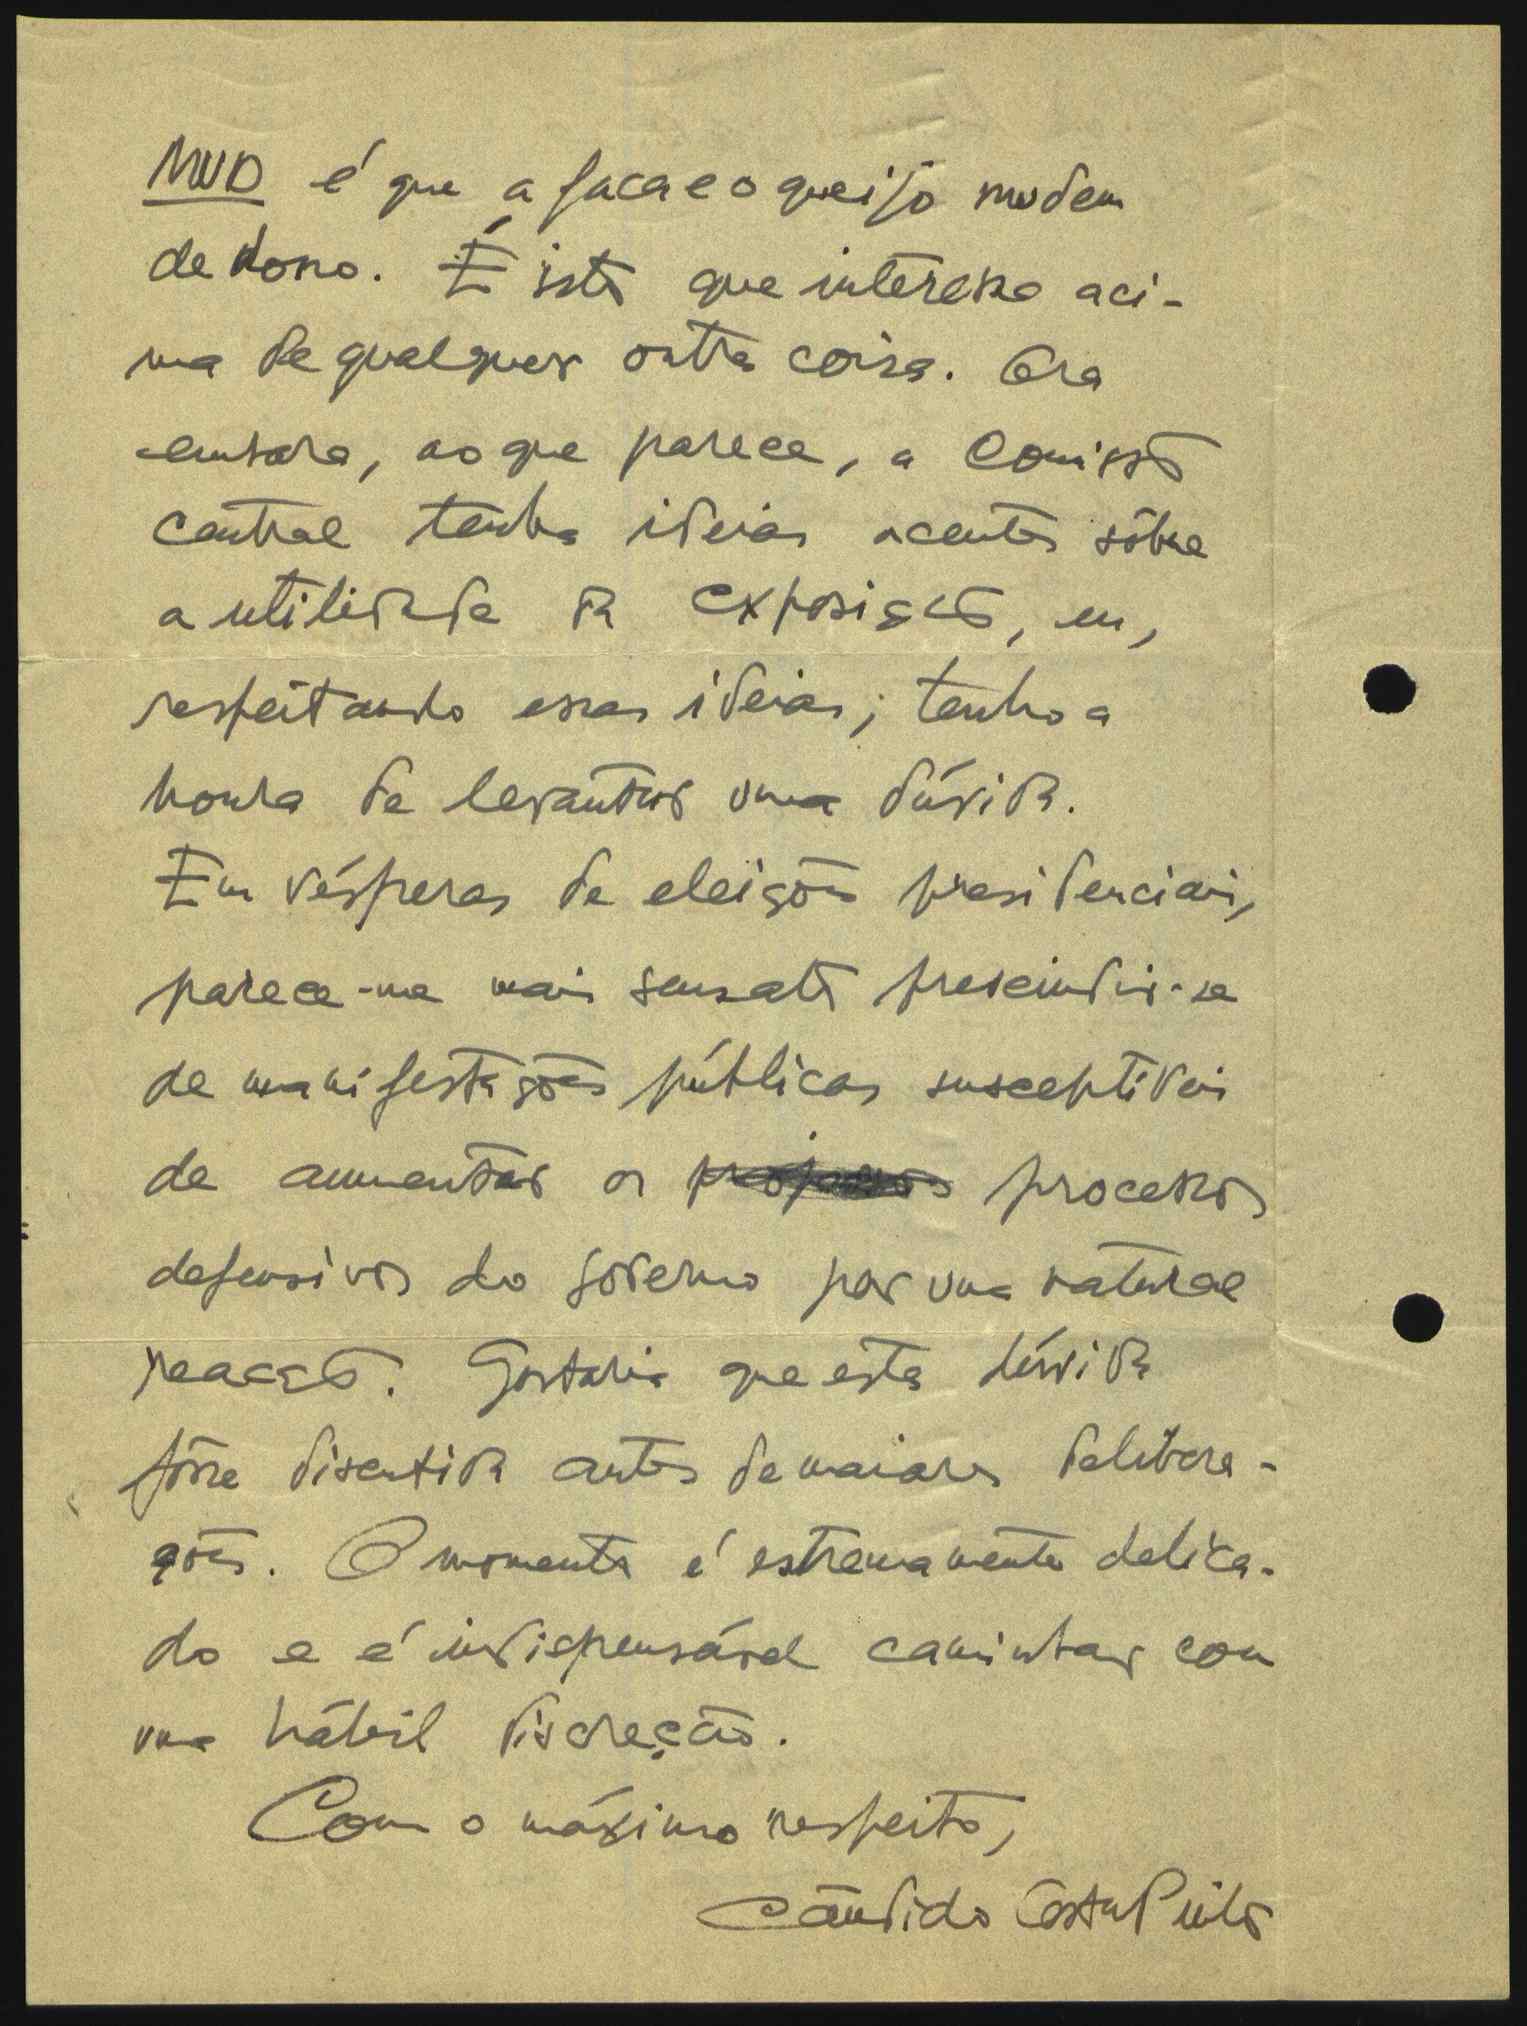 MUD é que a faca e o queijo mudem
de dono. É isto que interessa aci-
ma de qualquer outra coisa. Ora
embora, ao que parece, a Comissão
central tenha ideias acentes sôbre
a utilidade da exposição, eu,
respeitando essas ideias, tenho a
honra de levantar uma dúvida.
Em vésperas de eleições presidenciais,
parece-me mais sensato prescindir-se
de manifestações públicas susceptiveis
de aumentar os processos
defensivos do governo por uma natural
reacção. Gostaria que esta dúvida
fôsse discutida antes de maiores delibera-
ções. O momento é estremamente delica-
do e é indispensável caminhar com
uma hábil discreção.
Com o máximo respeito,
Cândido Costa Pinto